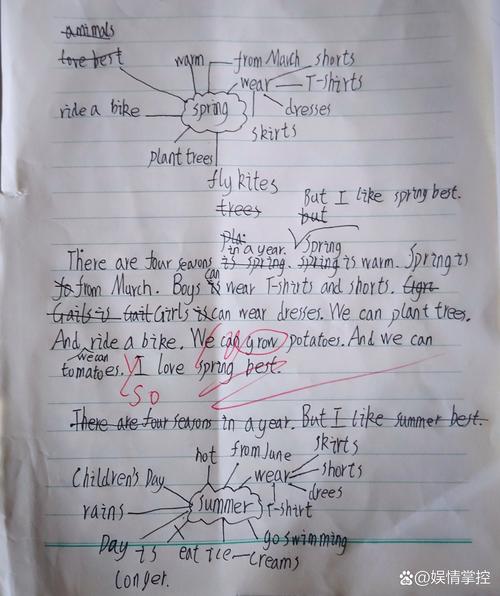 animals
love best
warm
from March
shorts
wear
T-shirts
ride a bike
spring
dresses
skirts
plant trees
fly kites
trees
But I like spring best.
but
pla
in a year. Spring
There are four seasons is spring. spring is warm. Spring is
to from March. Boys is can wear T-shirts and shorts.
Girls is can wear dresses. We can plant trees.
And ride a bike. We can grow potatoes. And we can
we can
tomatoes. I love spring best.
So
There are four seasons in a year. But I like summer best.
hot
from June
skirts
Children's Day
wear
shorts
drees
rains
summer
T-shirt
Day is
longer.
eat Ice-creams
go swimming
百家号@娱情掌控